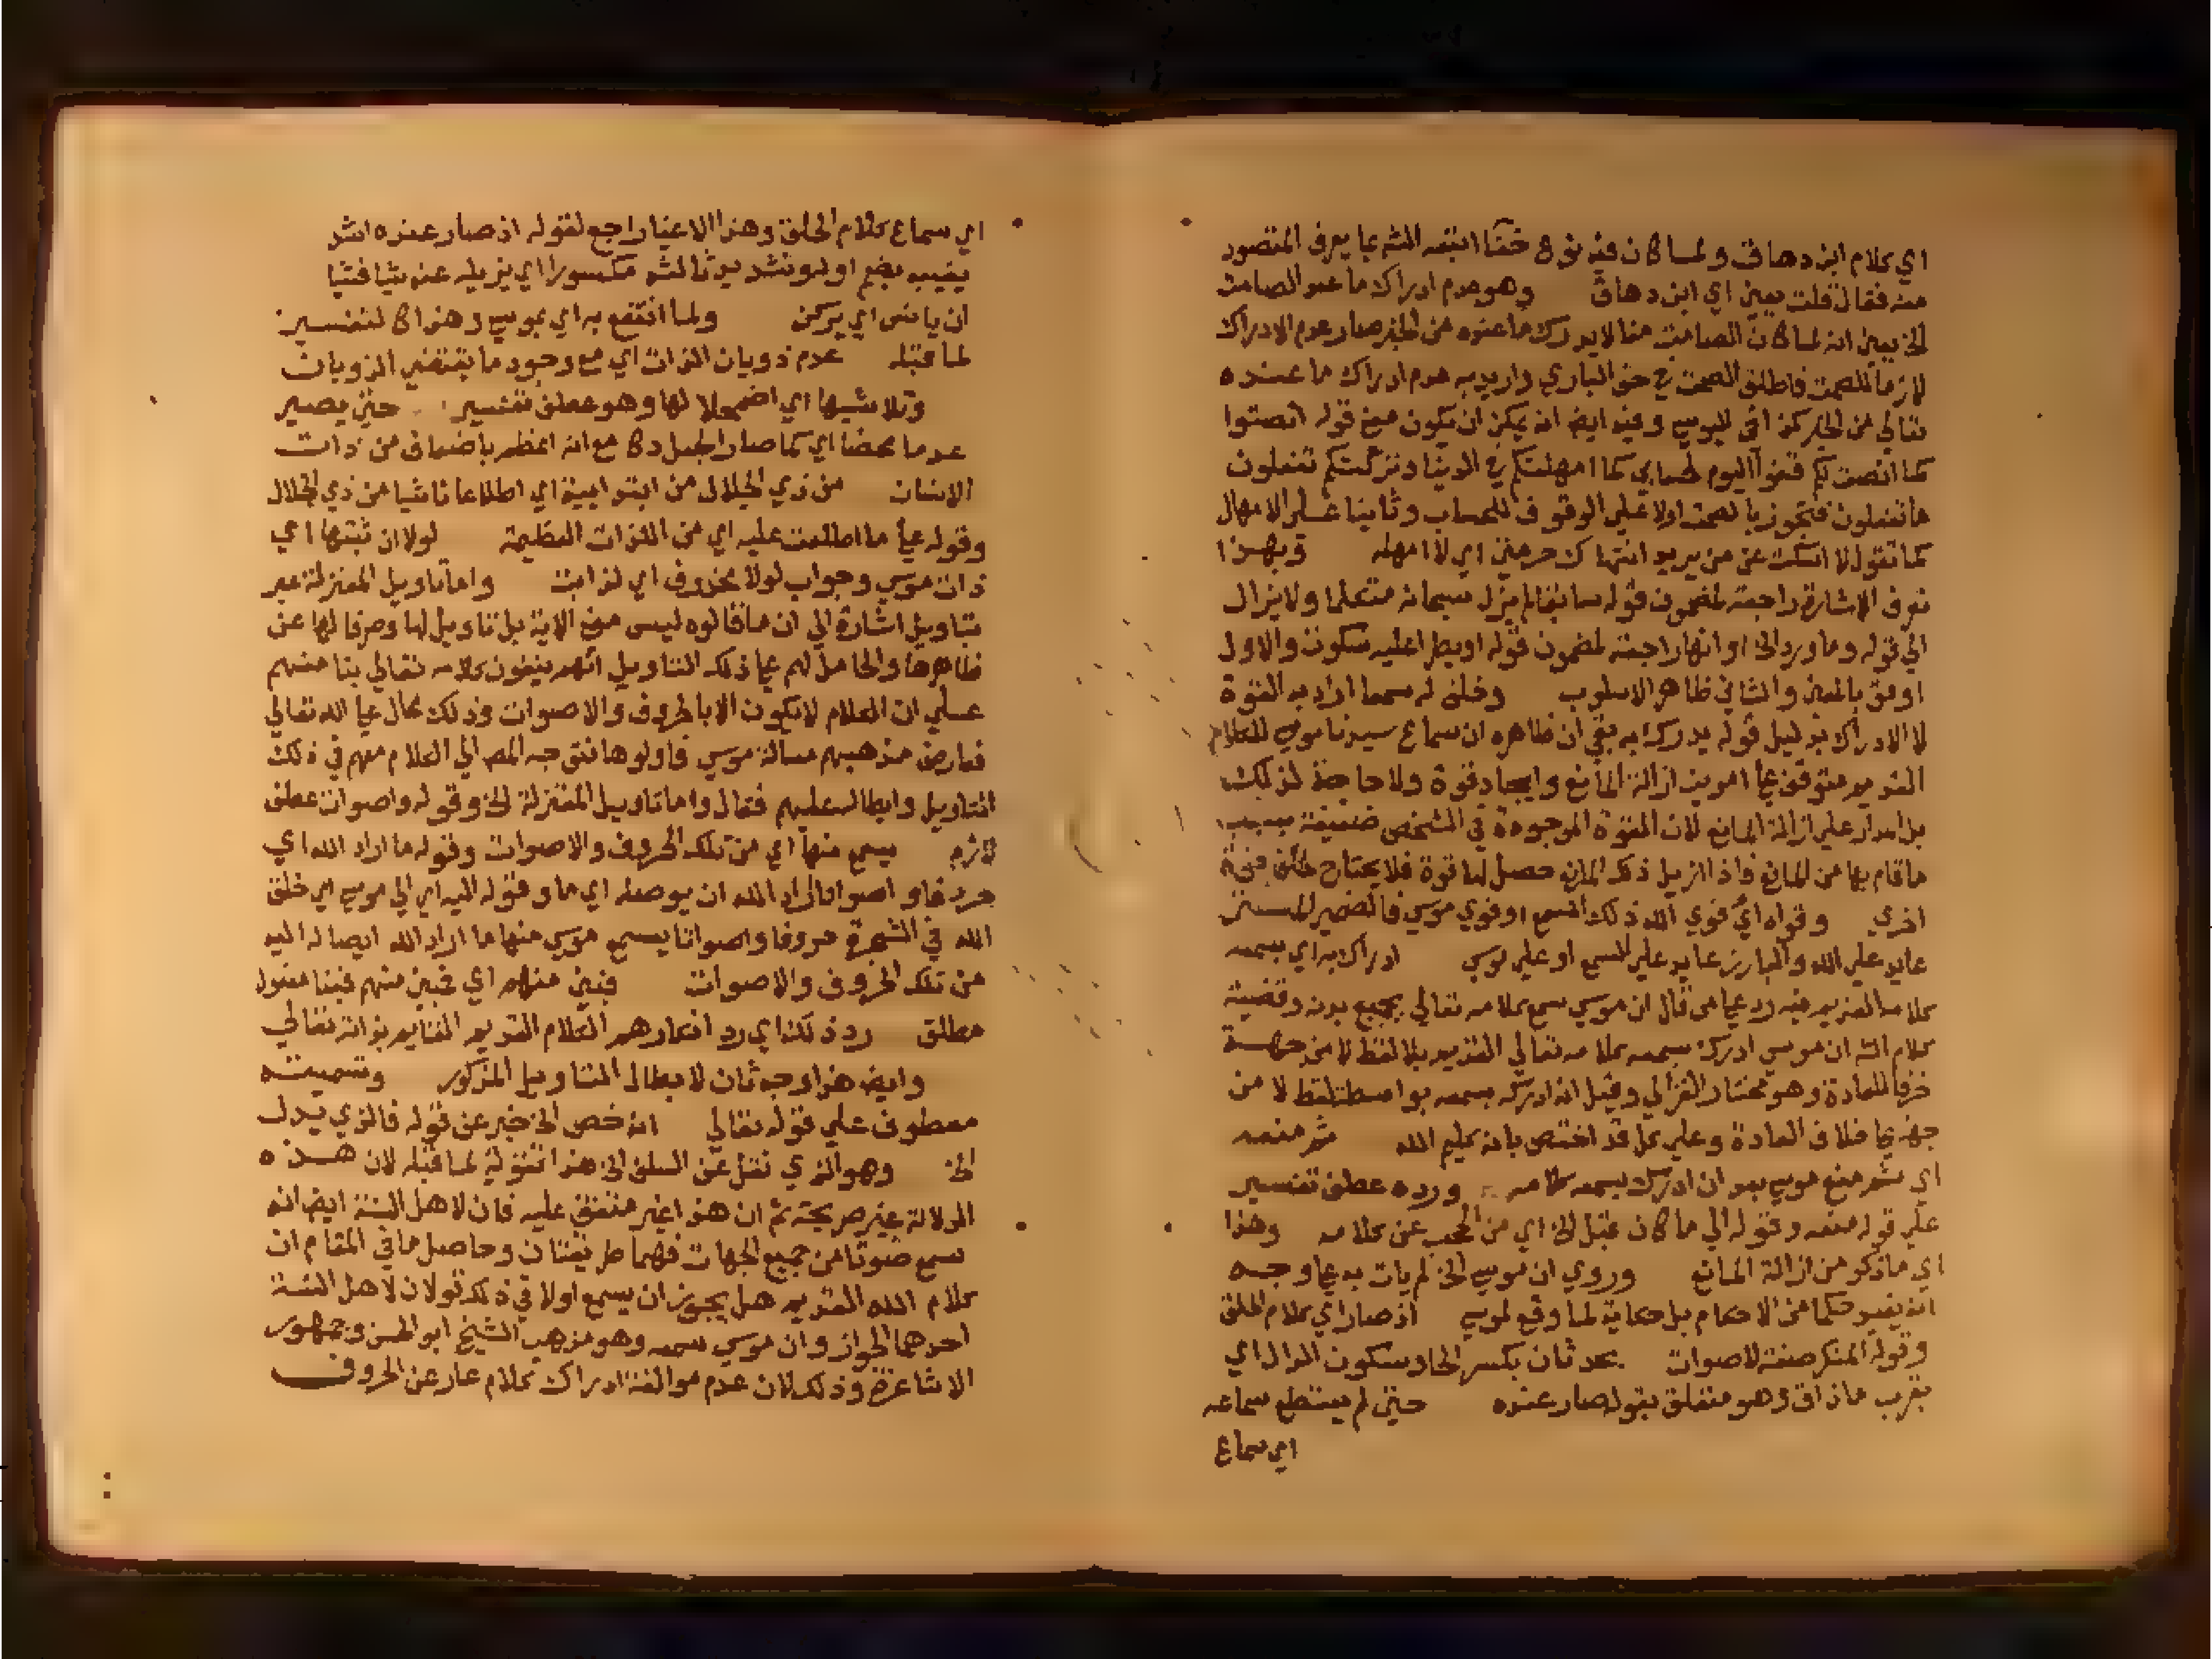 اي كلام ابن دهاق ولما كان فيه نوع خفا اتبعه الشه بما يعرف المقصود
منه فقال قلت يعني اي ابن دهاق وهو عدم ادراك ما عند الصامت
الخ يعني انه لما كان الصامت منا لا يدرك ما عنده من الخبر صار عدم الادراك
لازما للصمت فاطلق الصمت في حق الباري واريد به عدم ادراك ما عنده
تعالي من الخبر كذا افي اليوسي وفيه ايض انه يمكن ان يكون معني قوله انصتوا
كما انصت لكم قفوا اليوم لحسابي كما امهلتكم في الدنيا وتركتكم تفعلون
ما تفعلون فتجوز بالصمت اولا علي الوقوف للحساب وثانيا علي الامهال
كما تقول لا اسكت عن من يريد انتهاك حرمتي اي لا امهله وبهذا
تعرف الاشارة راجعة لمضمون قوله سابقا لم يزل سبحانه متكلما ولا يزال
الي قوله وما ورد الخ او انها راجعة لمضمون قوله او يطرا عليه سكوت والاول
اوفق بالمعني والثاني ظاهر الاسلوب وخلق له سمعا اراد به القوة
لا الادراك بدليل قوله يدرك به بقي ان ظاهره ان سماع سيدنا موسي للكلام
القديم متوقف علي امرين ازالة المانع وايجاد قوة ولا حاجة لذلك
بل المدار علي ازالة المانع لان القوة الموجودة في الشخص ضعيفة بسبب
ما قام بها من المانع فاذا ازيل ذلك المانع حصل لها قوة فلا يحتاج لخلق قوة
اخري وقواه اي قوي الله ذلك السمع او قوي موسي فالضمير المستتر
عايد علي الله والبارز عايد علي السمع او علي موسي ادراك به اي بسمعه
كلامه القديم فيه رد علي من قال ان موسي سمع كلامه تعالي بجميع بدنه وقضية
كلام الشه ان موسي ادرك بسمعه كلامه تعالي القديم بلا لفظ لا من جهة
خرقا للعادة وهو مختار الغزالي وقيل انه ادركه بسمعه بواسطة لفظ لا من
جهة علي خلاف العادة وعلي كل قد اختص بانه كليم الله ثم منعه
اي ثم منع موسي بعد ان ادرك بسمعه كلامه ورده عطف تفسير
علي قوله منعه وقوله الي ما كان قبل الخ اي من الحجب عن كلامه وهذا
اي ما ذكر من ازالة المانع وروي ان موسي الخ لم يات به علي وجه
انه يفيد حكما من الاحكام بل حكاية لما وقع لموسي اذ صار اي كلام الخلق
وقوله المنكر صفة لاصوات بحدثان بكسر الحاء وسكون الدال اي
بقرب ما ذاق وهو متعلق بقوله صار عنده حتي لم يستطع سماعه
اي سماع
اي سماع كلام الخلق وهذا الاعتبار راجع لقوله اذ صار عنده اشد
يغيبه بضم اوله وتشديد ثالثه مكسورا اي يزيله عنه شيا فشيا
ان يانس اي يركن ولما انتفع به اي موسي وهذا كالتفسير
لما قبله عدم ذوبان الذات اي مع وجود ما يقتضي الذوبان
وتلاشيها اي اضمحلالها وهو عطف تفسير حتي يصير
عدما محضا اي كما صار الجبل دكا مع انه اعظم باضعاف من ذات
الانسان من ذي الجلال من ابتدايية اي اطلاعا ناشيا من ذي الجلال
وقوله علي ما اطلعت عليه اي من الذات العظيمة لولا ان ثبتها اي
ذات موسي وجواب لولا محذوف اي لذابت واما تاويل المعتزلة عبر
بتاويل اشارة الي ان ما قالوه ليس معني الاية بل تاويل لها وصرفا لها عن
ظاهرها والحامل لهم علي ذلك التاويل انهم ينفون كلامه تعالي بنا منهم
علي ان الكلام لا يكون الا بالحروف والاصوات وذلك محال علي الله تعالي
فعارض مذهبهم مسالة موسي فاولوها فتوجه المص الي الكلام معهم في ذلك
التاويل وابطاله عليهم فقال واما تاويل المعتزلة الخ وقوله واصوات عطف
لازم يسمع منها اي من تلك الحروف والاصوات وقوله ما اراد الله اي
حروفا واصواتا اراد الله ان يوصله اي ما وقوله اليه اي الي موسي اي خلق
الله في الشجرة حروفا واصواتا يسمع موسي منها ما اراد الله ايصاله اليه
من تلك الحروف والاصوات فبني منهم اي فبني منهم فبنا مفعول
مطلق رد ذلك اي رد انكارهم الكلام القديم القايم بذاته تعالي
وايض هذا وجه ثان لابطال التاويل المذكور وتسميته
معطوف علي قوله تعالي انه خص الخ خبر عن قوله فالذي يدل
الخ وهو الذي نقل عن السلف الخ هذا تقوية لما قبله لان هذه
الدلالة غير صريحة ثم ان هذا غير متفق عليه فان لاهل السنة ايض انه
سمع صوتا من جميع الجهات فهما طريقتان وحاصل ما في المقام ان
كلام الله القديم هل يجوز ان يسمع اولا في ذلك قولان لاهل السنة
احدهما الجواز وان موسي سمعه وهو مذهب الشيخ ابو الحسن وجمهور
الاشاعرة وذلك لان عدم موالفة ادراك كلام عار عن الحروف